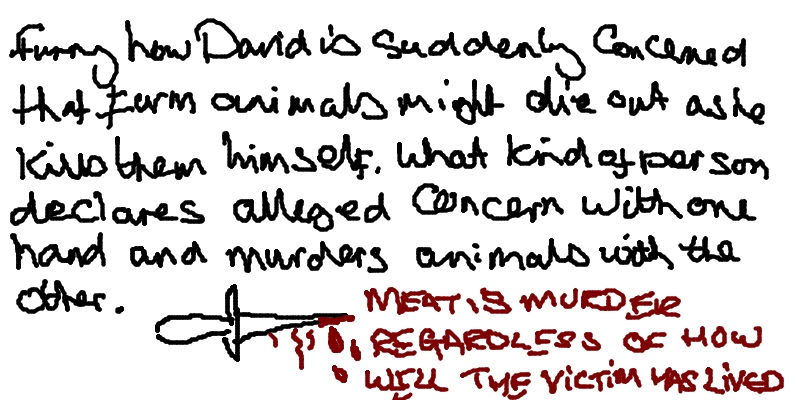 Funny how David is suddenly concerned
that farm animals might die out as he
kills them himself. What kind of person
declares alleged concern with one
hand and murders animals with the
other.
MEAT IS MURDER
REGARDLESS OF HOW
WELL THE VICTIM HAS LIVED